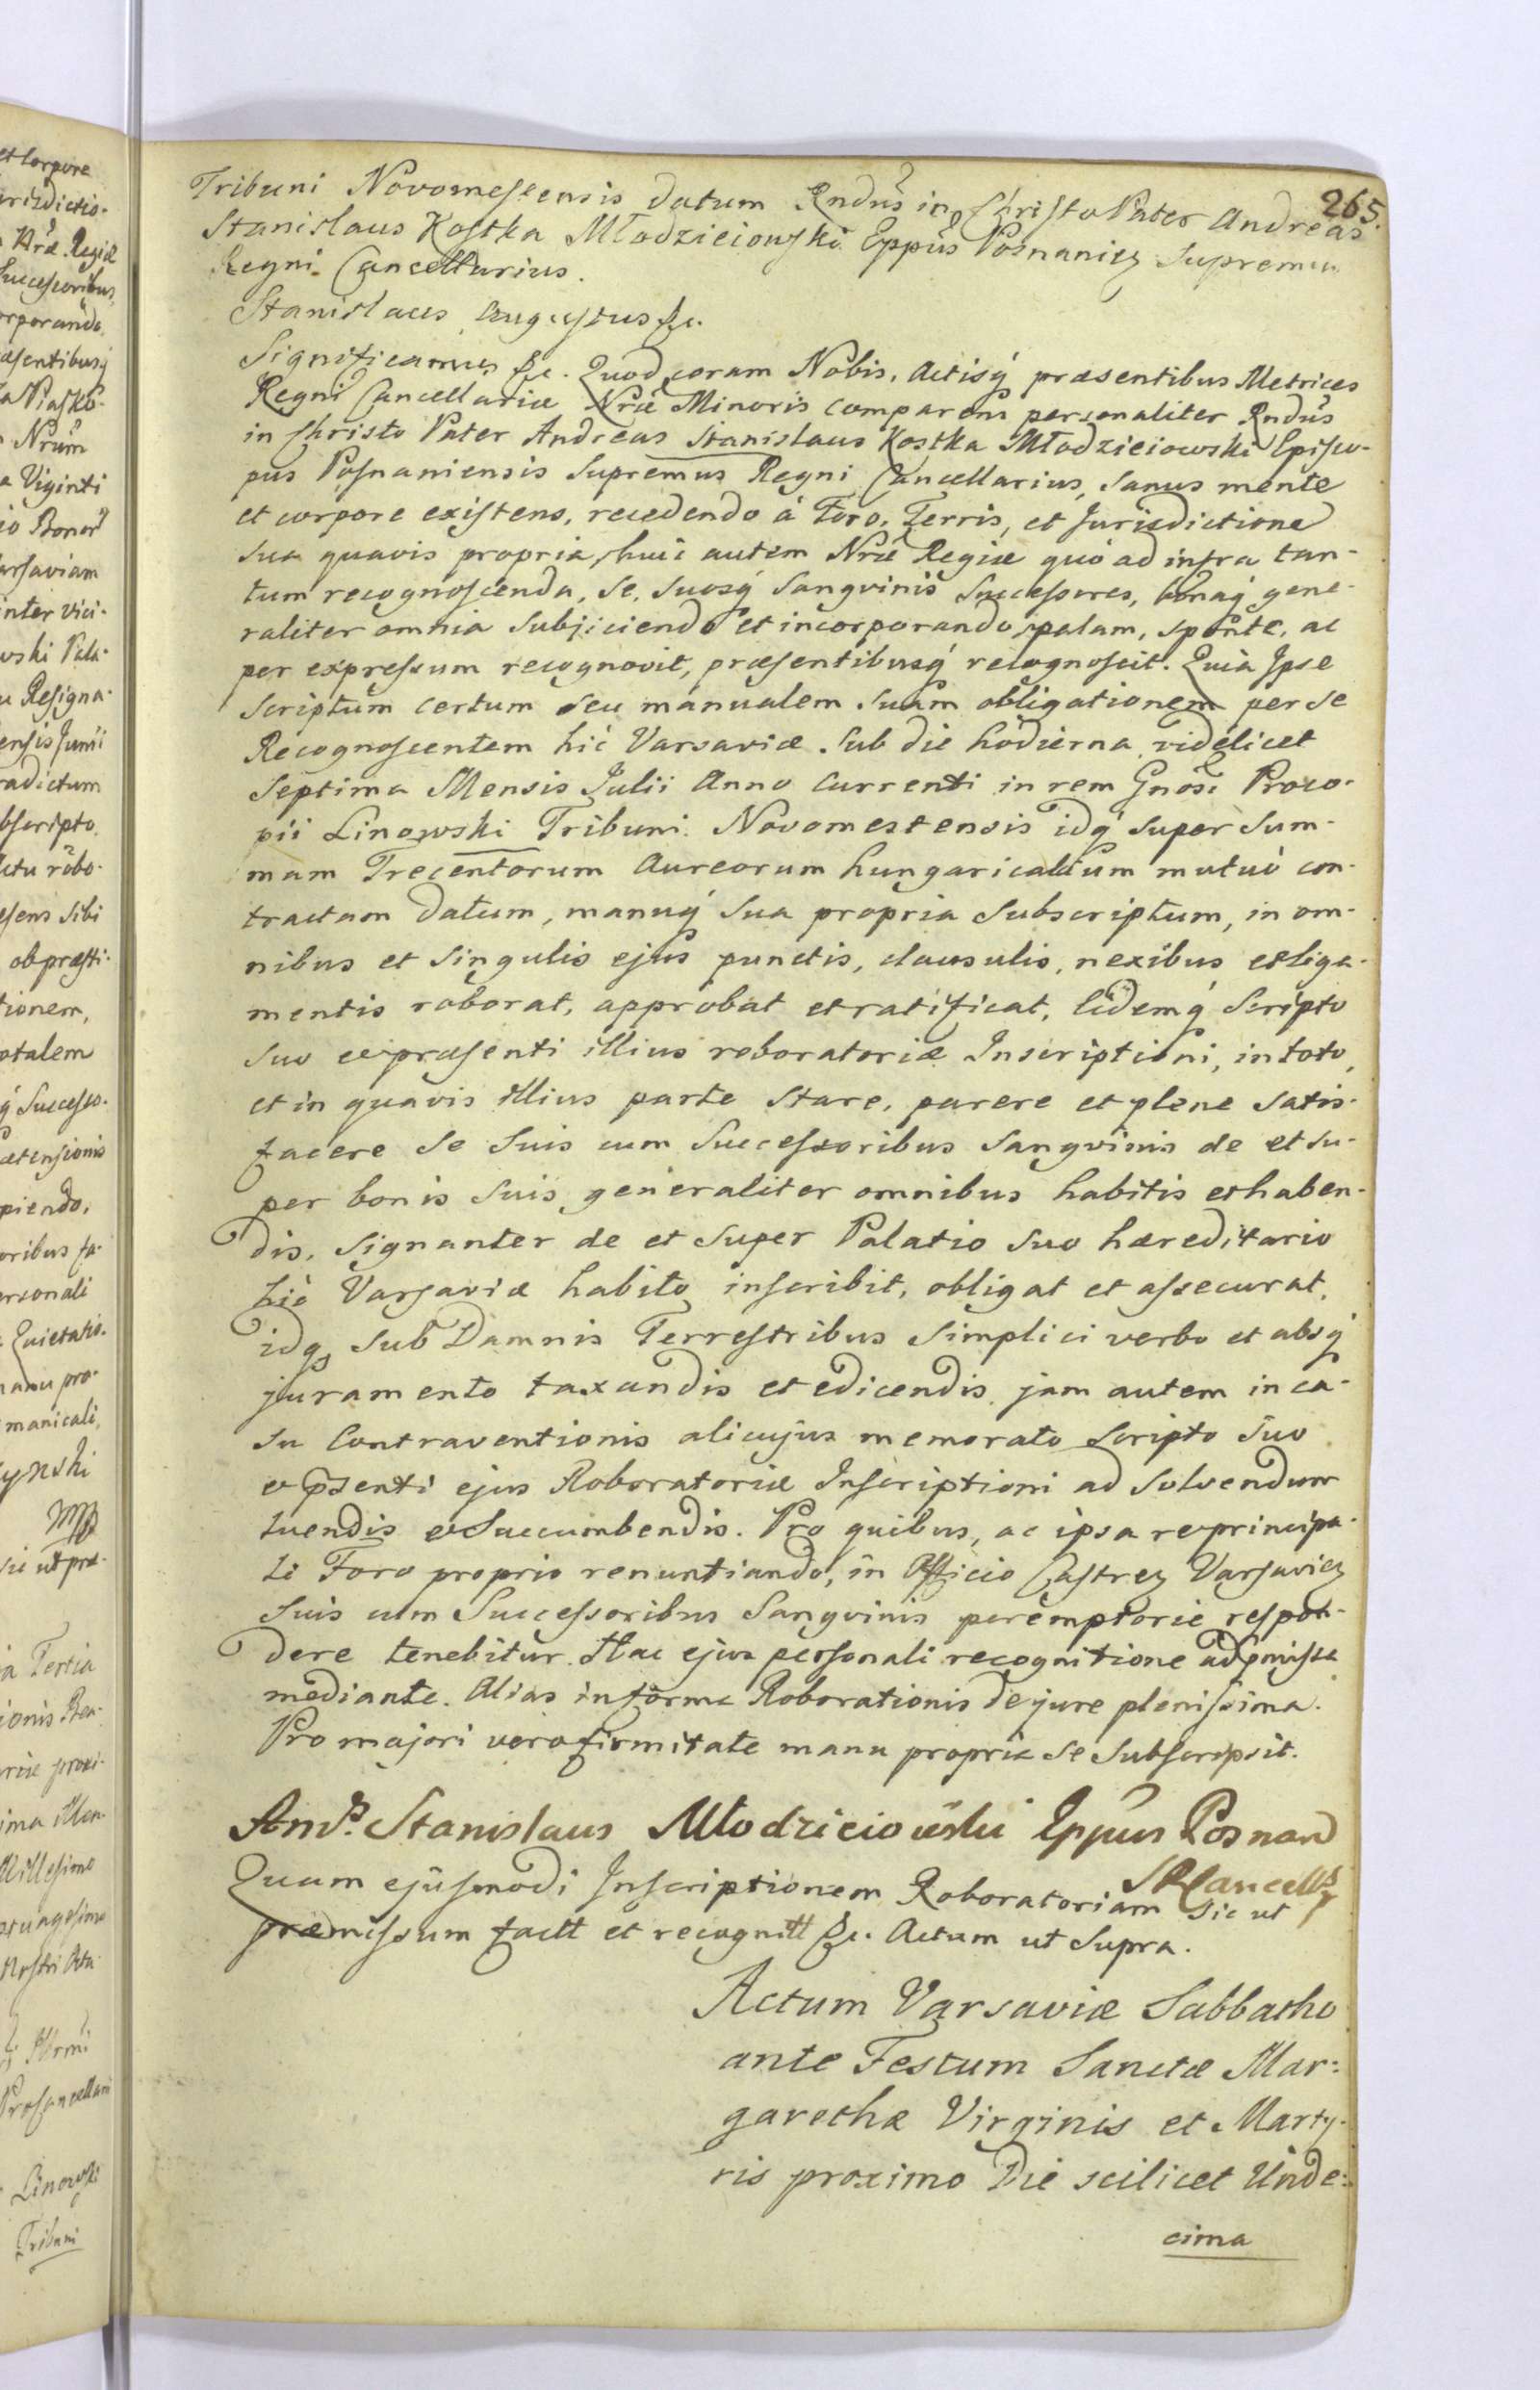 265.
Tribuni Novomestensis datum Rndus in Christo Pater Andreas
Stanislaus Kostka Młodzieiowski Eppus Posnaniẽ Supremus
Regni Cancellarius.
Stanislaus Augustus &c.
Significamus &c. Quod coram Nobis, Actisq́ præsentibus Metrices
Regni Cancellariæ Nræ Minoris comparens personaliter Rndus
in Christo Pater Andreas Stanislaus Kostka Młodzieiowski Episco-
pus Posnaniensis Supremus Regni Cancellarius, sanus mente
et corpore existens, recedendo à Foro, Terris, et Jurisdictione
sua quavis propria, huic autem Nræ Regiæ quò ad infra tan-
tum recognoscenda, se, suosq́ Sangvinis Successores, bonaq́ gene-
raliter omnia subjiciendo et incorporando, palam, sponte, ac
per expressum recognovit, præsentibusq́ recognoscit. Quia Ipse
scriptum certum seu manualem suam obligationem per se
Recognoscentem hic Varsaviæ sub die hodierna videlicet
Septima Mensis Julii Anno Currenti in rem Gnosi Proco-
pii Linowski Tribuni Novomestensis idq́ super sum-
mam Trecentorum Aureorum hungaricalium mutuò con-
tractam datum, manuq́ sua propria subscriptum, in om-
nibus et singulis ejus punctis, clausulis, nexibus et liga-
mentis roborat, approbat et ratificat, eidemq́ Scripto
suo et præsenti illius roboratoriæ Inscriptioni, in toto,
et in quavis illius parte stare, parere et plene satis-
facere se suis cum Successoribus Sangvinis de et su-
per bonis suis generaliter omnibus habitis et haben-
dis, signanter de et super Palatio suo hæreditario
hic Varsaviæ habito inscribit, obligat et assecurat,
idq́ sub Damnis Terrestribus simplici verbo et absq́
juramento taxandis et edicendis, jam autem in ca-
su Contraventionis alicujus memorato scripto suo
et p̃senti ejus Roboratoriæ Inscriptioni ad solvendum
luendis et succumbendis. Pro quibus, ac ipsa re principa-
li Foro proprio renuntiando, in Officio Castreñ Varsavieñ
suis cum Successoribus Sangvinis peremptorie respon-
dere tenebitur. Hac ejus personali recognitione ad p̃missa
mediante. Alias in forma Roborationis de jure plenissima.
Pro majori vero firmitate manu propria se subscripsit.
Andr. Stanislaus Młodzieiowski Eppus Posnan
SRCancells
Quam ejusmodi Inscriptionem Roboratoriam sic ut
præmissum factt et recognitt &c. Actum ut supra.
Actum Varsaviæ Sabbatho
ante Festum Sanctæ Mar:
garethæ Virginis et Marty-
ris proximo Die scilicet Unde:
cima